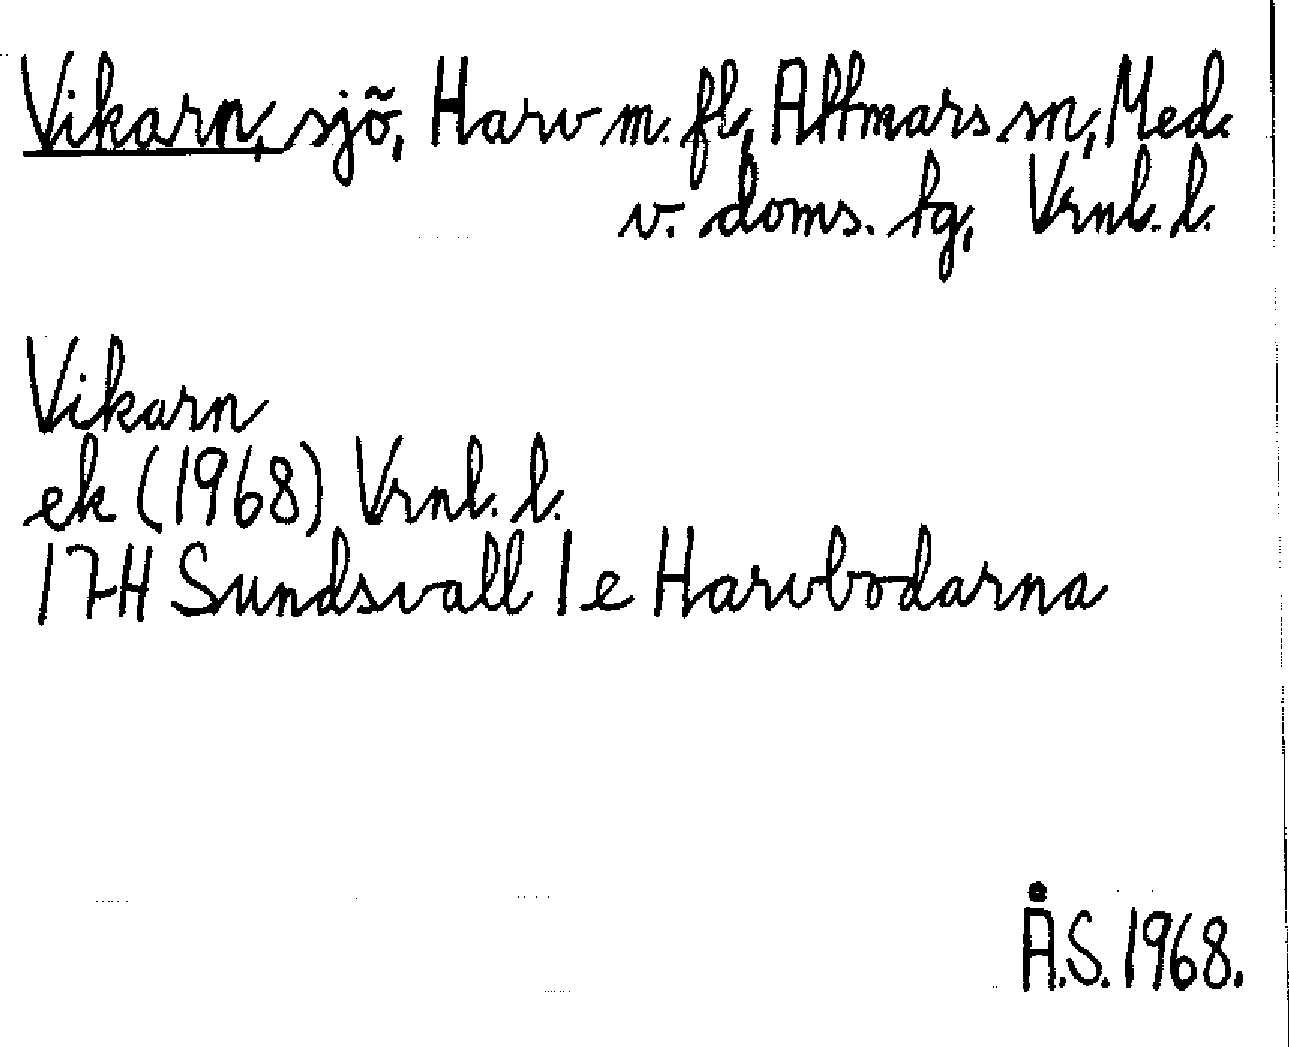 Vikarn, sjö, Harv m. fl, Attmars sn, Med.
v. doms. tg, Vrnl. l.
Vikarn
ek (1968) Vrnl. l.
17H Sundsvall 1e Harvbodarna
Å.S. 1968.